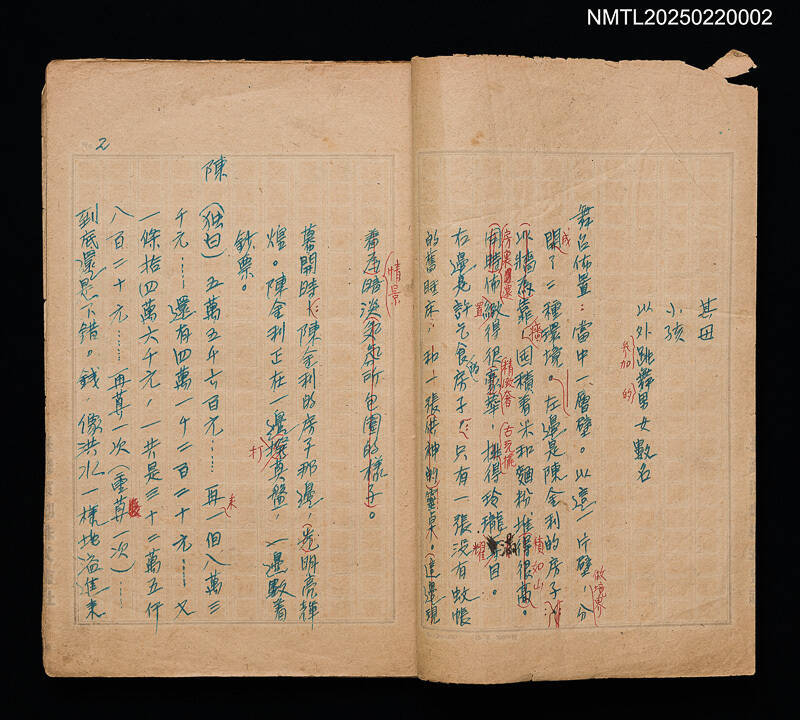 NMTL20250220002
其母
小孩
以外跳舞男女數名
參加的
舞台佈置:當中一層壁。以這一片壁,分
做境界
成
開了二種環境。左邊是陳金利的房子,
以牆為靠,囤積着米和麵粉堆得很高。
積如山
房裏
佈置得很豪華,擺得玲瓏 目。
精緻奢
古玩擺
耀
右邊是許乞食的房子。只有一張没有蚊帳
的舊睡床,和一張供神的靈桌。(這邊現
2
看 暗淡 所包圍的樣子。
情景
幕開時,陳金利的房子那邊,光明亮輝
煌。陳金利正在一邊 算盤,一邊數着
打
鈔票。
陳
(独白)五萬五千六百元……再一個八萬三
來
千元……還有四萬一千二百二十元……又
一條拾四萬六千元,一共是三十二萬五仟
八百二十元……再算一次(重算一次)……
到底還是不錯。錢,像洪水一樣地溢進來